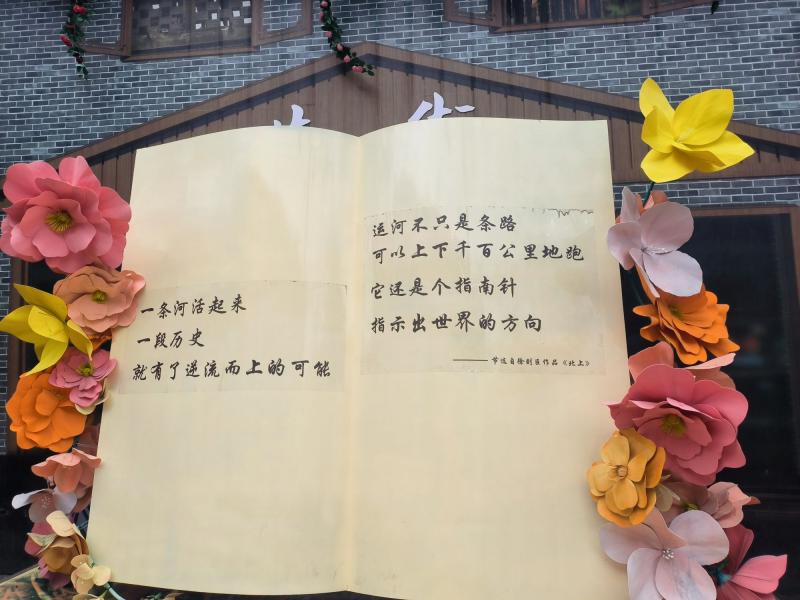 一条河活起来
一段历史
就有了逆流而上的可能
运河不只是条路
可以上下千百公里地跑
它还是个指南针
指示出世界的方向
——节选自徐则臣作品《北上》